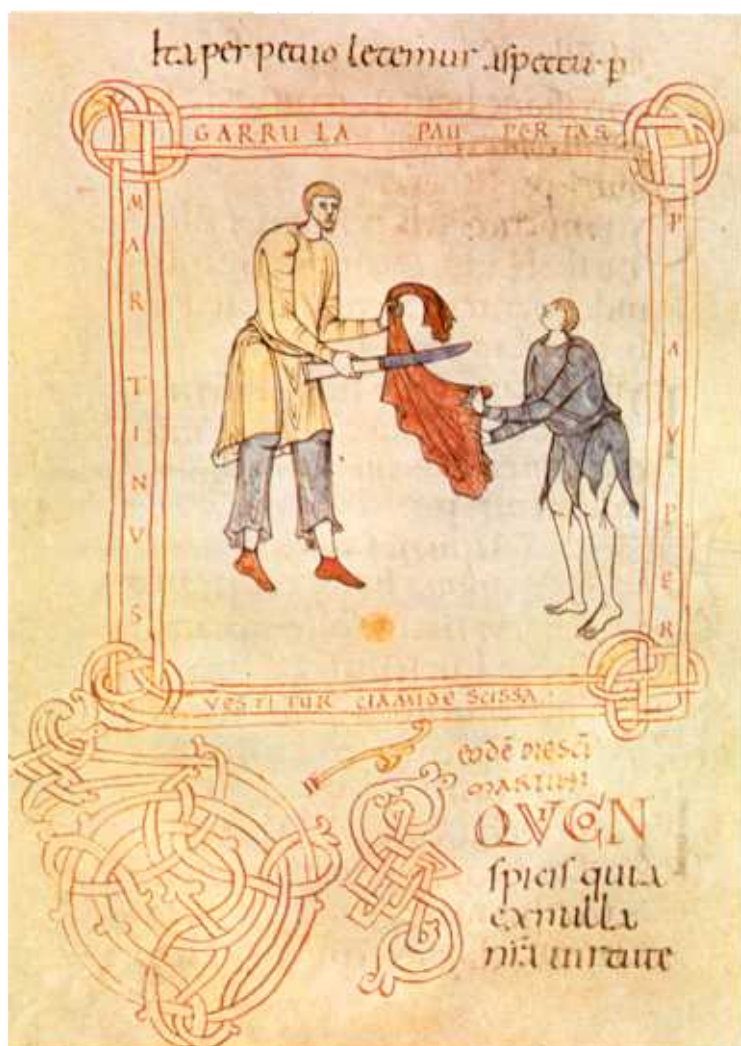 Ita perpetuo letemur aspectu. p
GARRULA PAUPERTAS
MARTINVS
PAVPER
VESTITUR CLAMIDE SCISSA
EODĒ DIE SCĪ
MARTINI
DS QVI CON
spicis quia
ex nulla
nrā uirtute